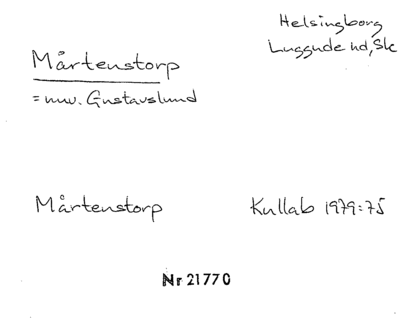 Helsingborg
Luggude hd, Sk
Mårtenstorp
= nuv. Gustavslund
Mårtenstorp Kullab 1979:75
Nr 21770